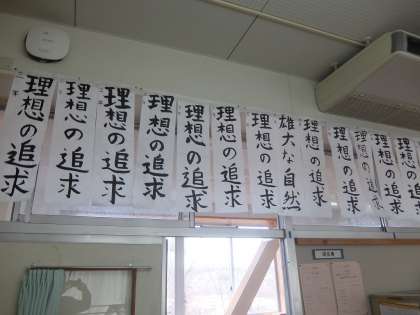 理想の追求
理想の追求
理想の追求
理想の追求
理想の追求
理想の追求
理想の追求
雄大な自然
理想の追求
理想の追求
理想の追求
理想の追求
理想の追求